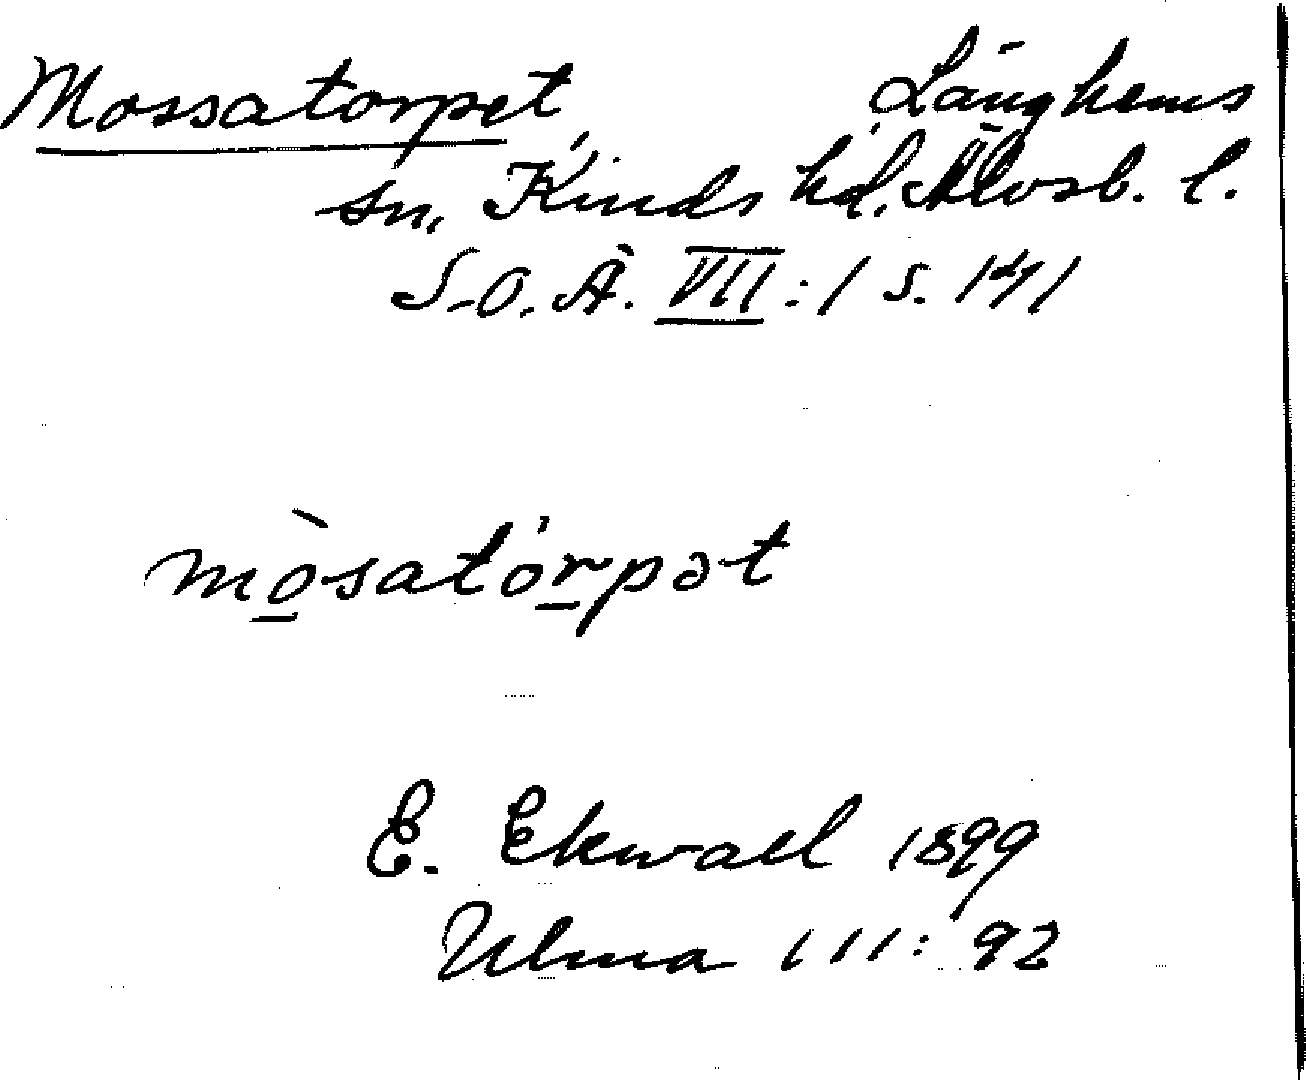 Mossatorpet Länghems
sn, Kinds hd. Älvsb. l.
S.O.Ä. VII:1 s. 141
mò̲satór̲pət
E. Ekwall 1899
Ulma 111:92